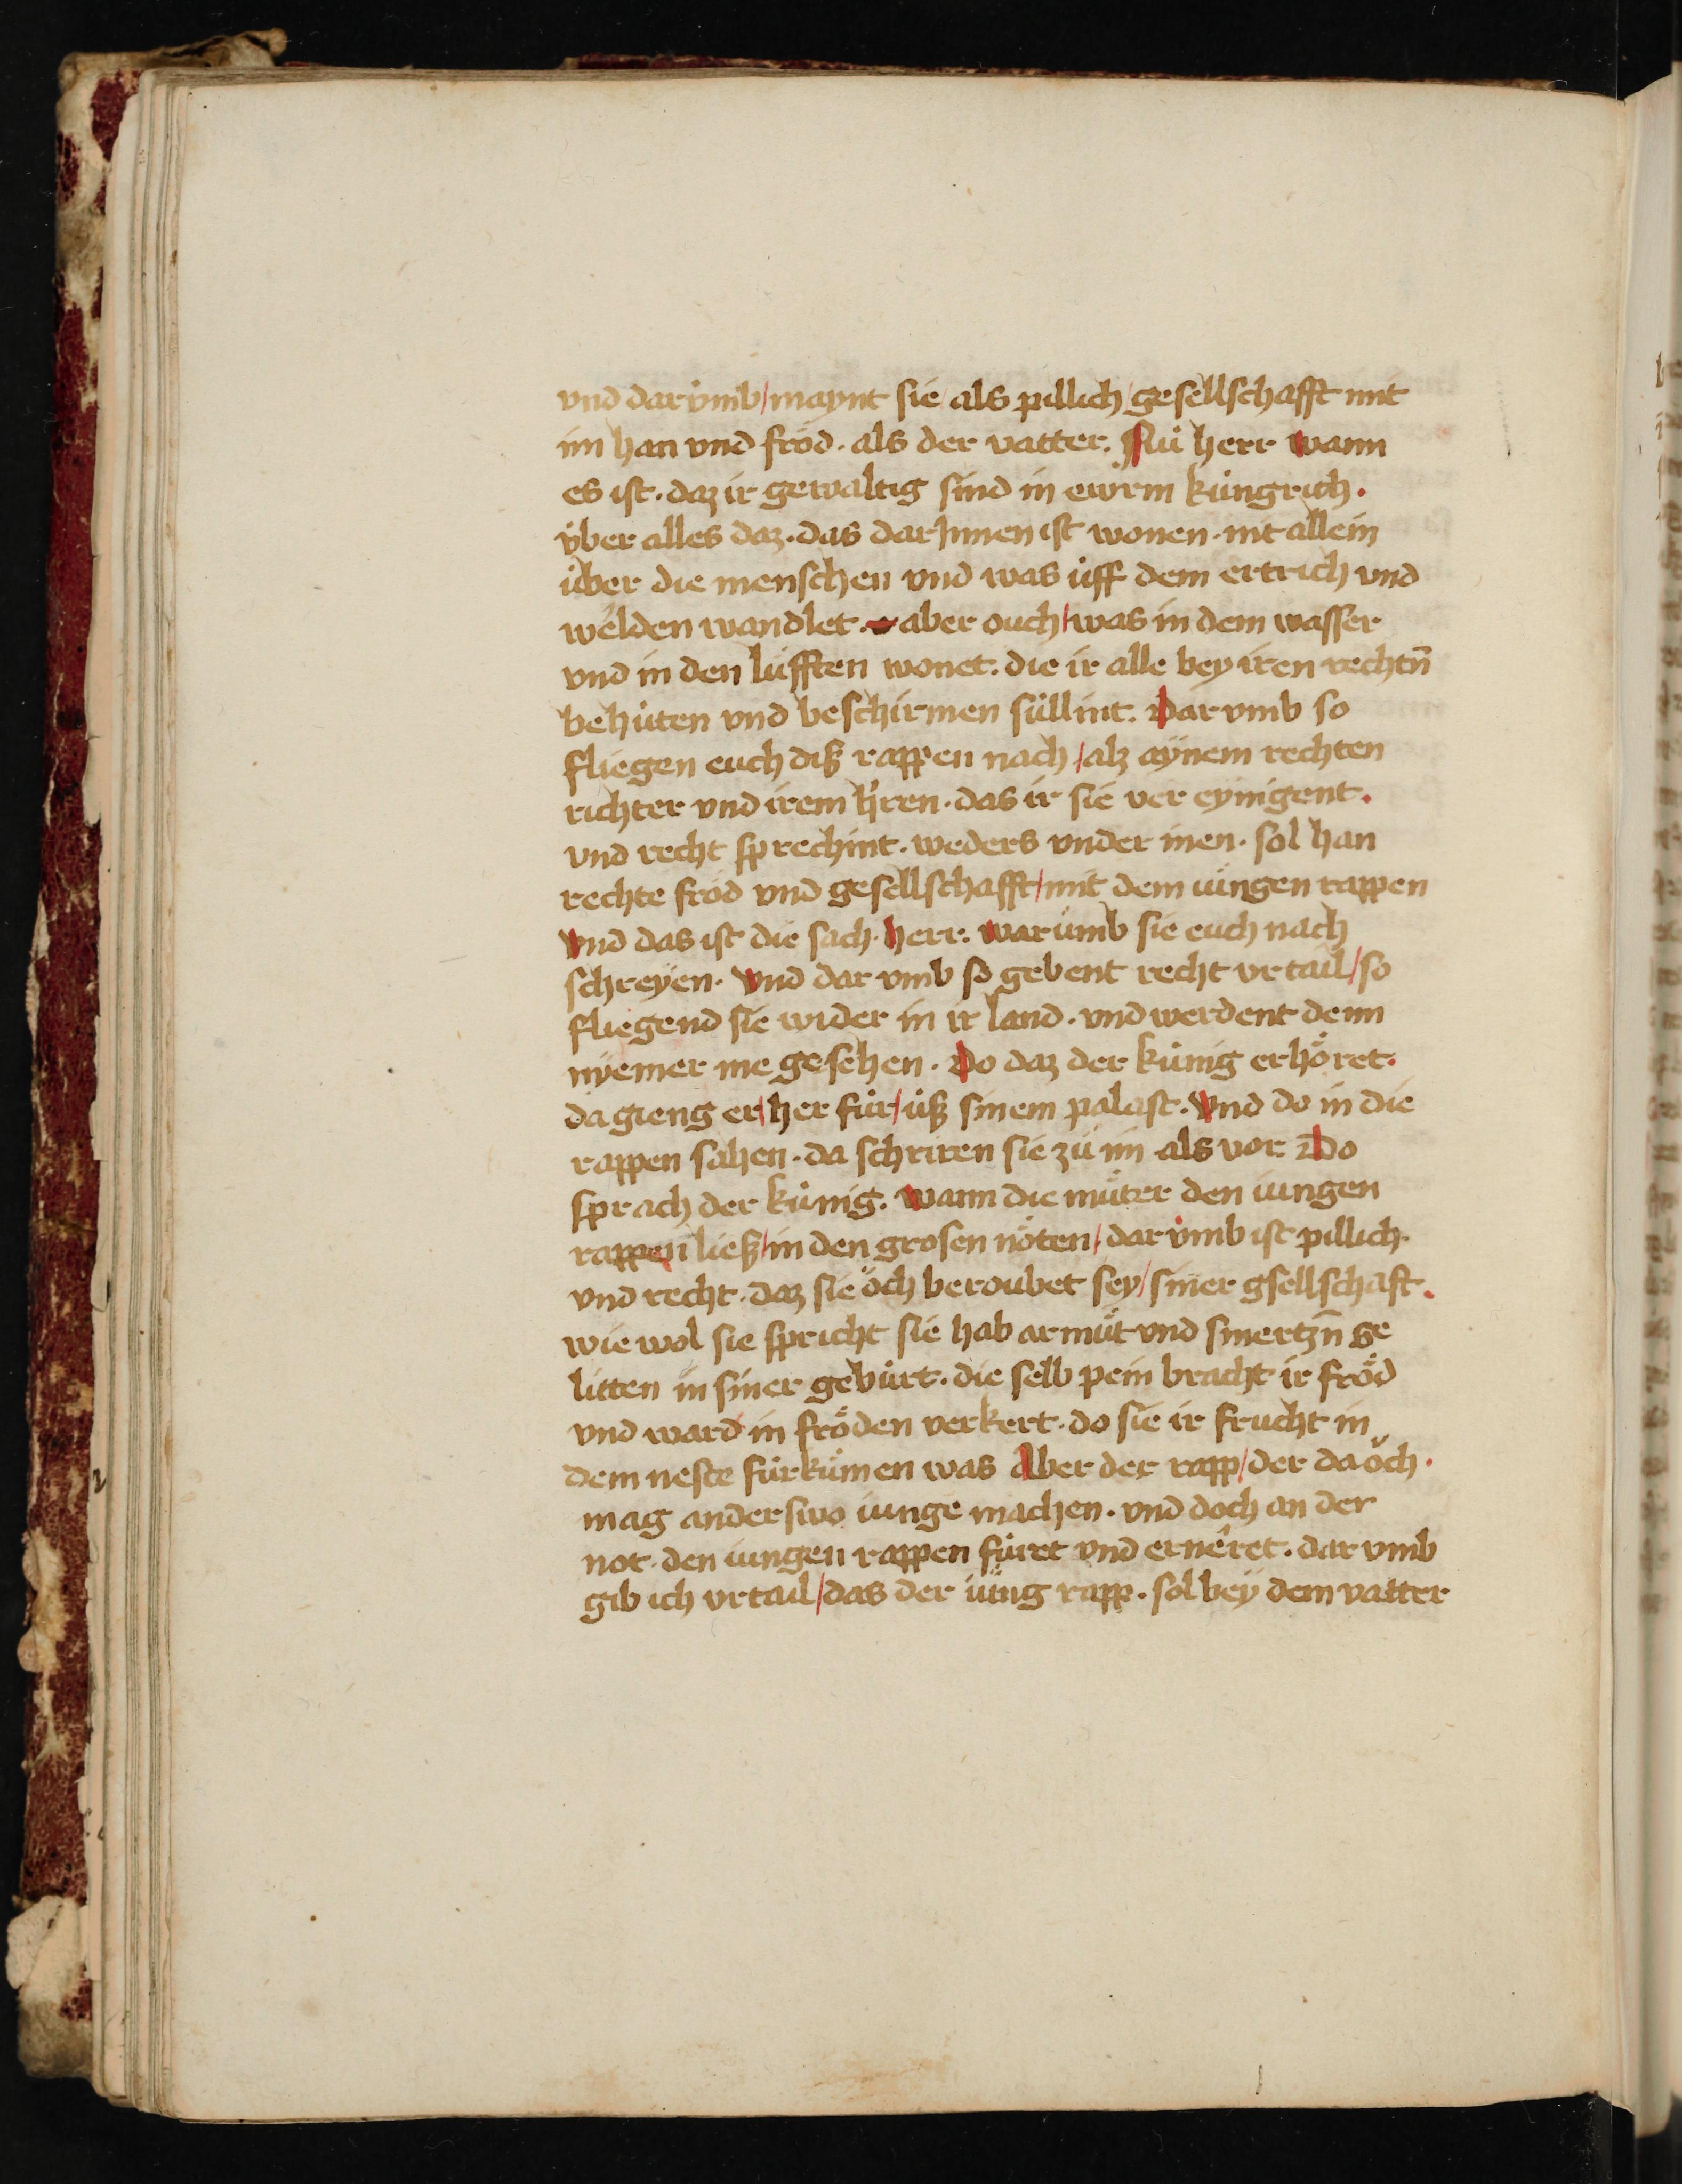 vnd darůmb / maynt sie als pillich gesellschafft mit
im han vnd fröd · als der vatter. Nů herr wann
es ist · daz ir gewaltig sind in ewrm küngrich.
über alles daz · das dar Innen ist wonen · nit allein
über die menschen vnd was üff dem ertrich vnd
wělden wandlet. aber ouch / was in dem wasser
vnd in den lüfften wonet. die ir alle bey iren rechtn̄
behüten vnd beschirmen süllint. Dar vmb so
fliegen euch diß rappen nach / alz aÿnem rechten
richter vnd irem h'ren · das ir sie ver eynigent.
vnd recht sprechint · weders vnder inen · sol han
rechte fröd vnd gesellschafft / mit dem iüngen rappen
Vnd das ist die sach · herr. warümb sie euch nach
schreÿen. Vnd dar vmb so gebent recht vrtail / so
fliegend sie wider in ir land · vnd werdent denn
nÿemer me gesehen. Do daz der künig erhöret.
da gieng er / her für / üß sinem palast. Vnd do in die
rappen sahen · da schriren sie zů im als vor. Do
sprach der künig. Wann die můter den iungen
rappen ließ / in den grosen nöten / darůmb ist pillich.
vnd recht · daz sie öch beroubet sey / siner gsellschaft.
wie wol sie spricht sie hab armůt vnd smertzn̄ ge
litten in siner gebürt. die selb pein bracht ir fröd
vnd ward in fröden verkert · do sie ir frucht in
dem neste fürkümen was Aber der rapp / der da öch.
mag anderswo iunge machen. vnd doch an der
not den iungen rappen füret vnd erneret. dar vmb
gib ich vrtail / das der iüng rapp · sol beÿ dem vatter